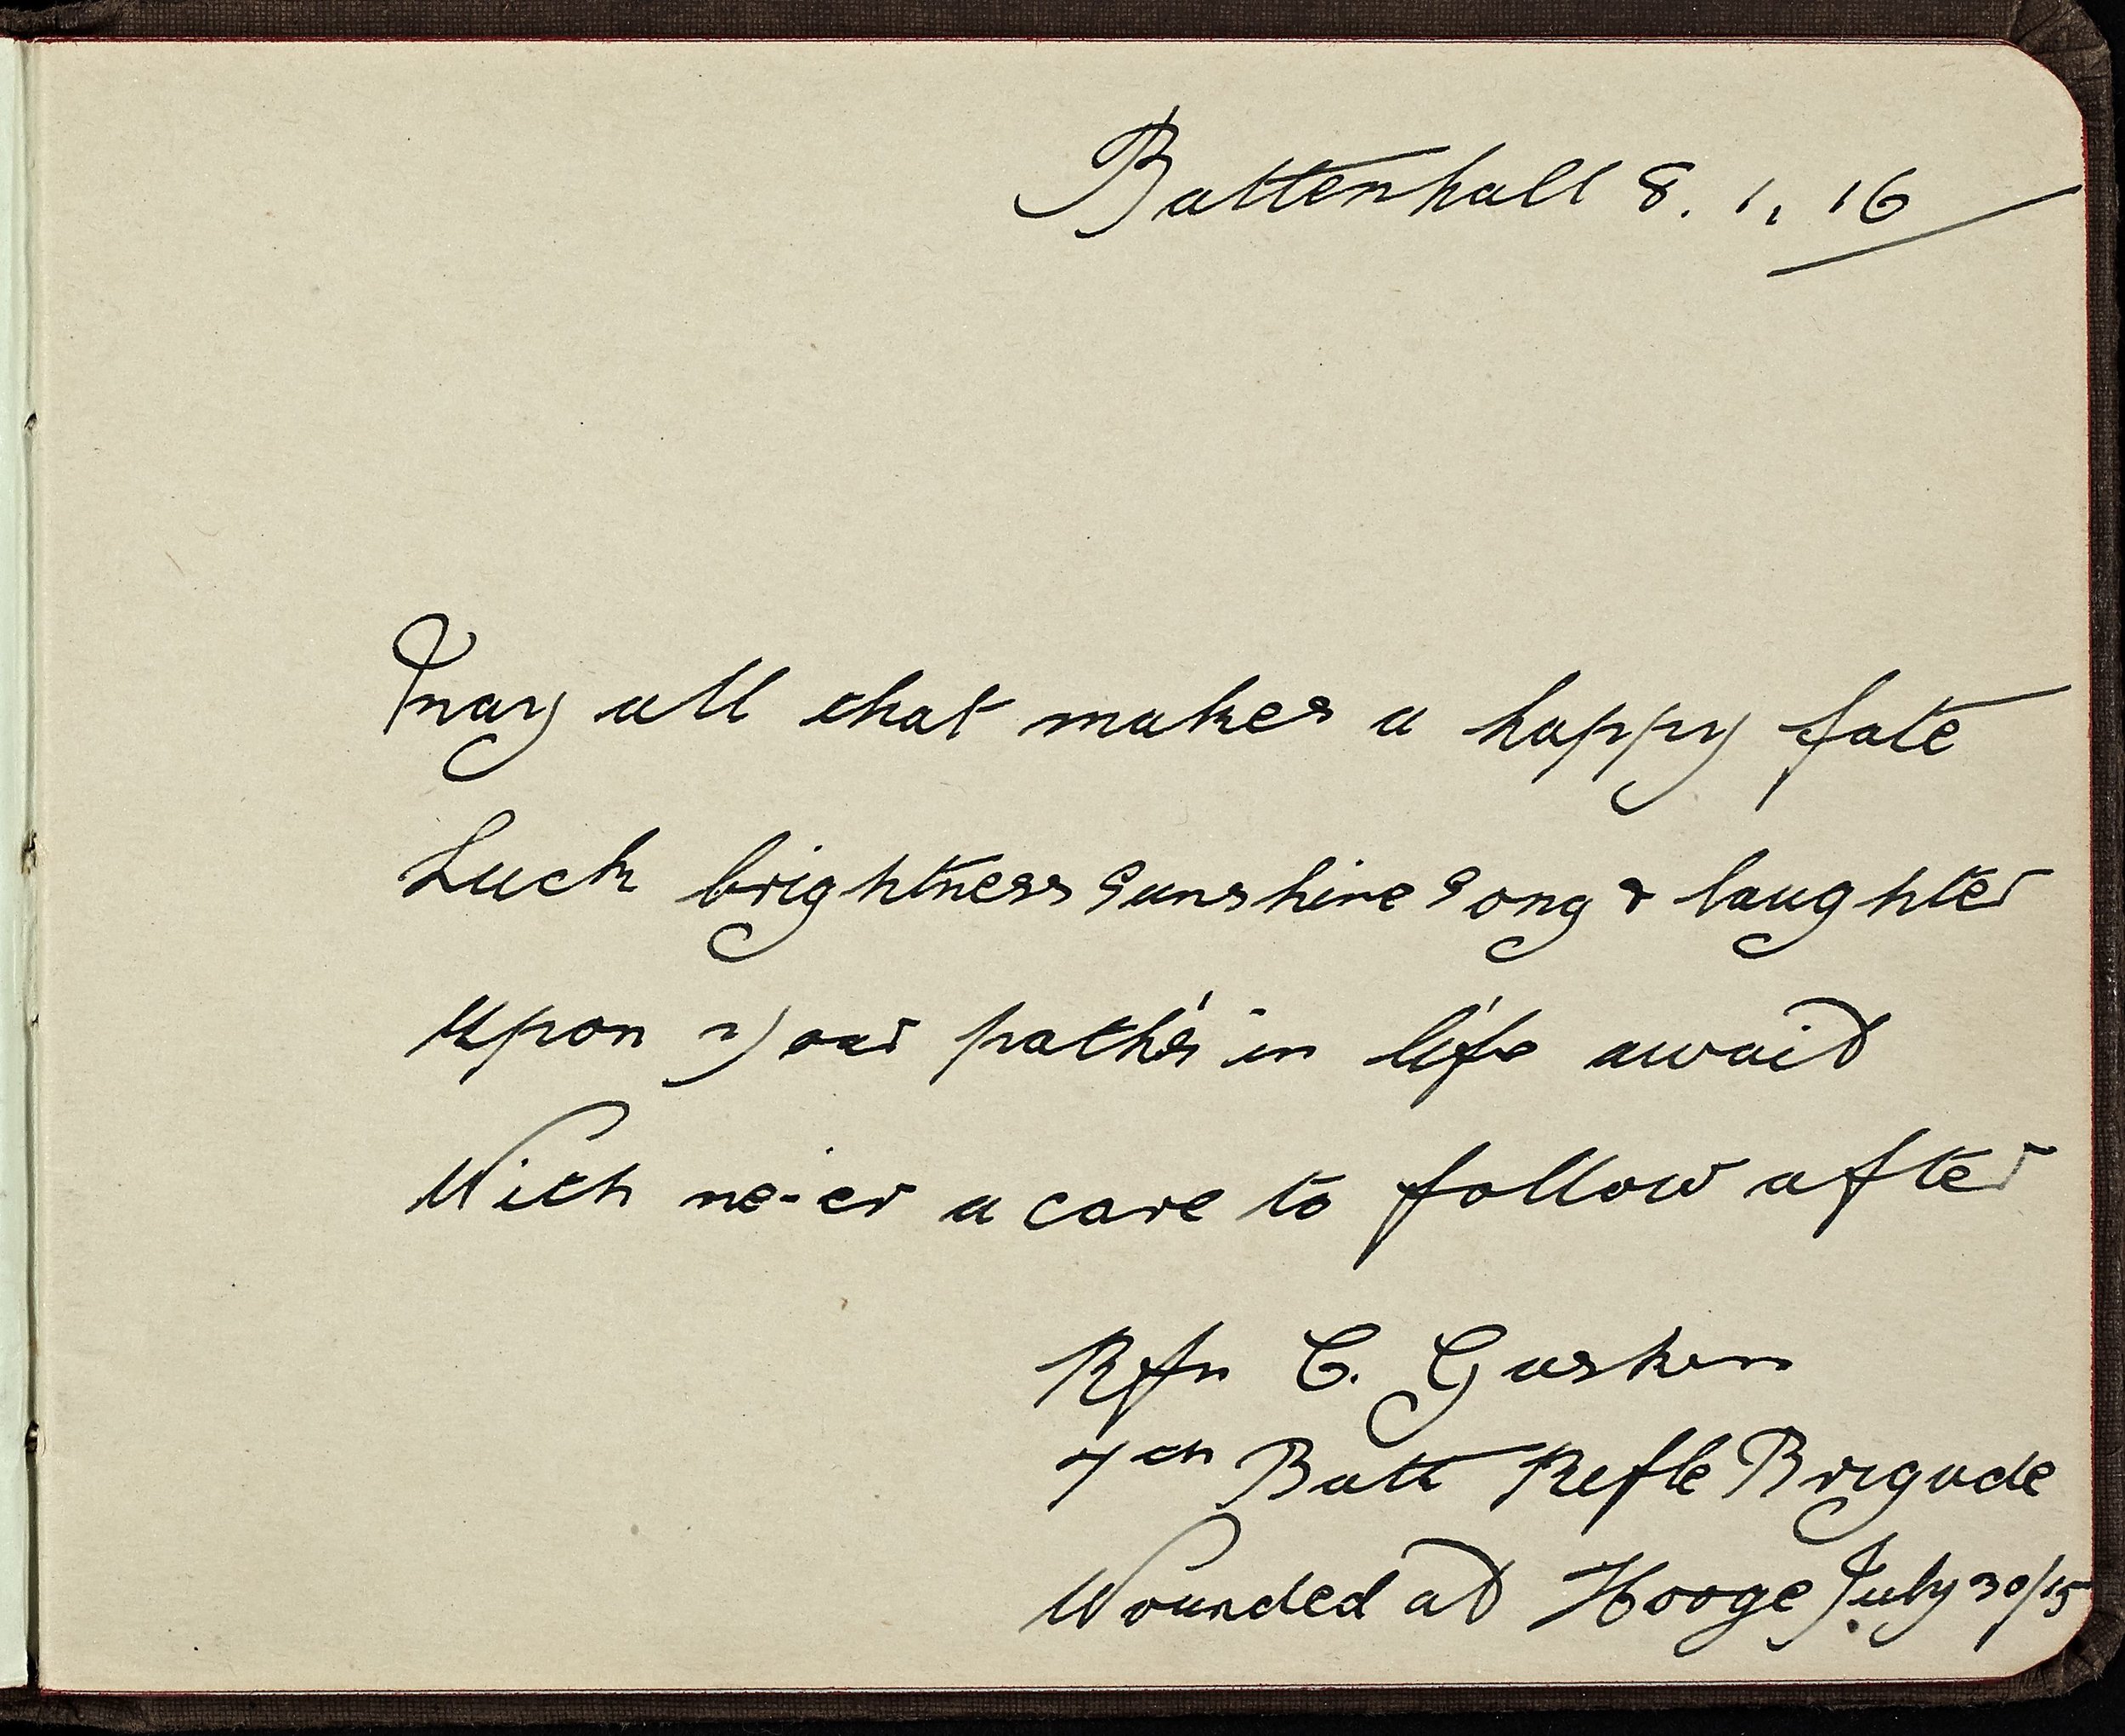 Battenhall 8. 1. 16
May all that makes a happy fate
Luck brightness sunshine song & laughter
Upon your path's in life await
With ne-er a care to follow after
Rfn C. Gasken
7th Batt Rifle Brigade
Wounded at Hooge July 30/15